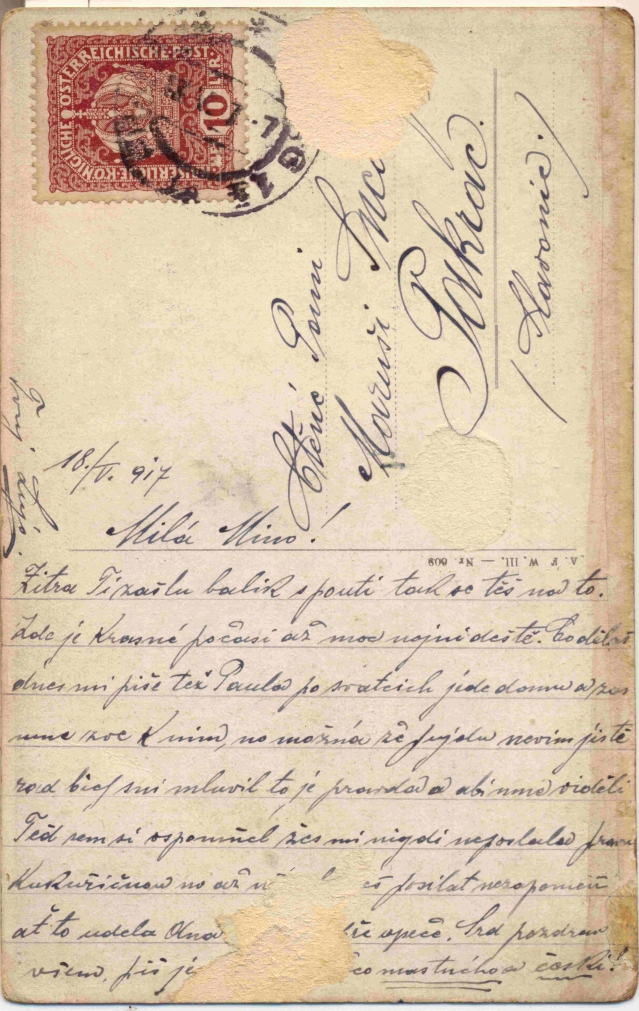 KAISERLICHE KÖNIGLICHE ÖSTERREICHISCHE POST
10
Ctěné Paní
Maruši
Pakrac.
(Slavonie)
18./V. 917
Milá Mino!
A. F. W. III. — Nr. 609
Zitra Ti zašlu balik s pouti tak se těš na to.
Zde je krasné počasi až moc nejni deště. Co děláš
dnes mi piše též Paula po svatcich jede domu a zas
mne zve k nim, no možná že pojedu nevim jistě
rad bich sni mluvil to je pravda a abi mne viděli
Těd sem si vspomněl žes mi nigdi neposlala
Kukuřičnou no až posilat nezapomeň
ať to udela Ana vře upeč. Srd pozdrav
všem, piš je co mastného a česki!
Tvuj